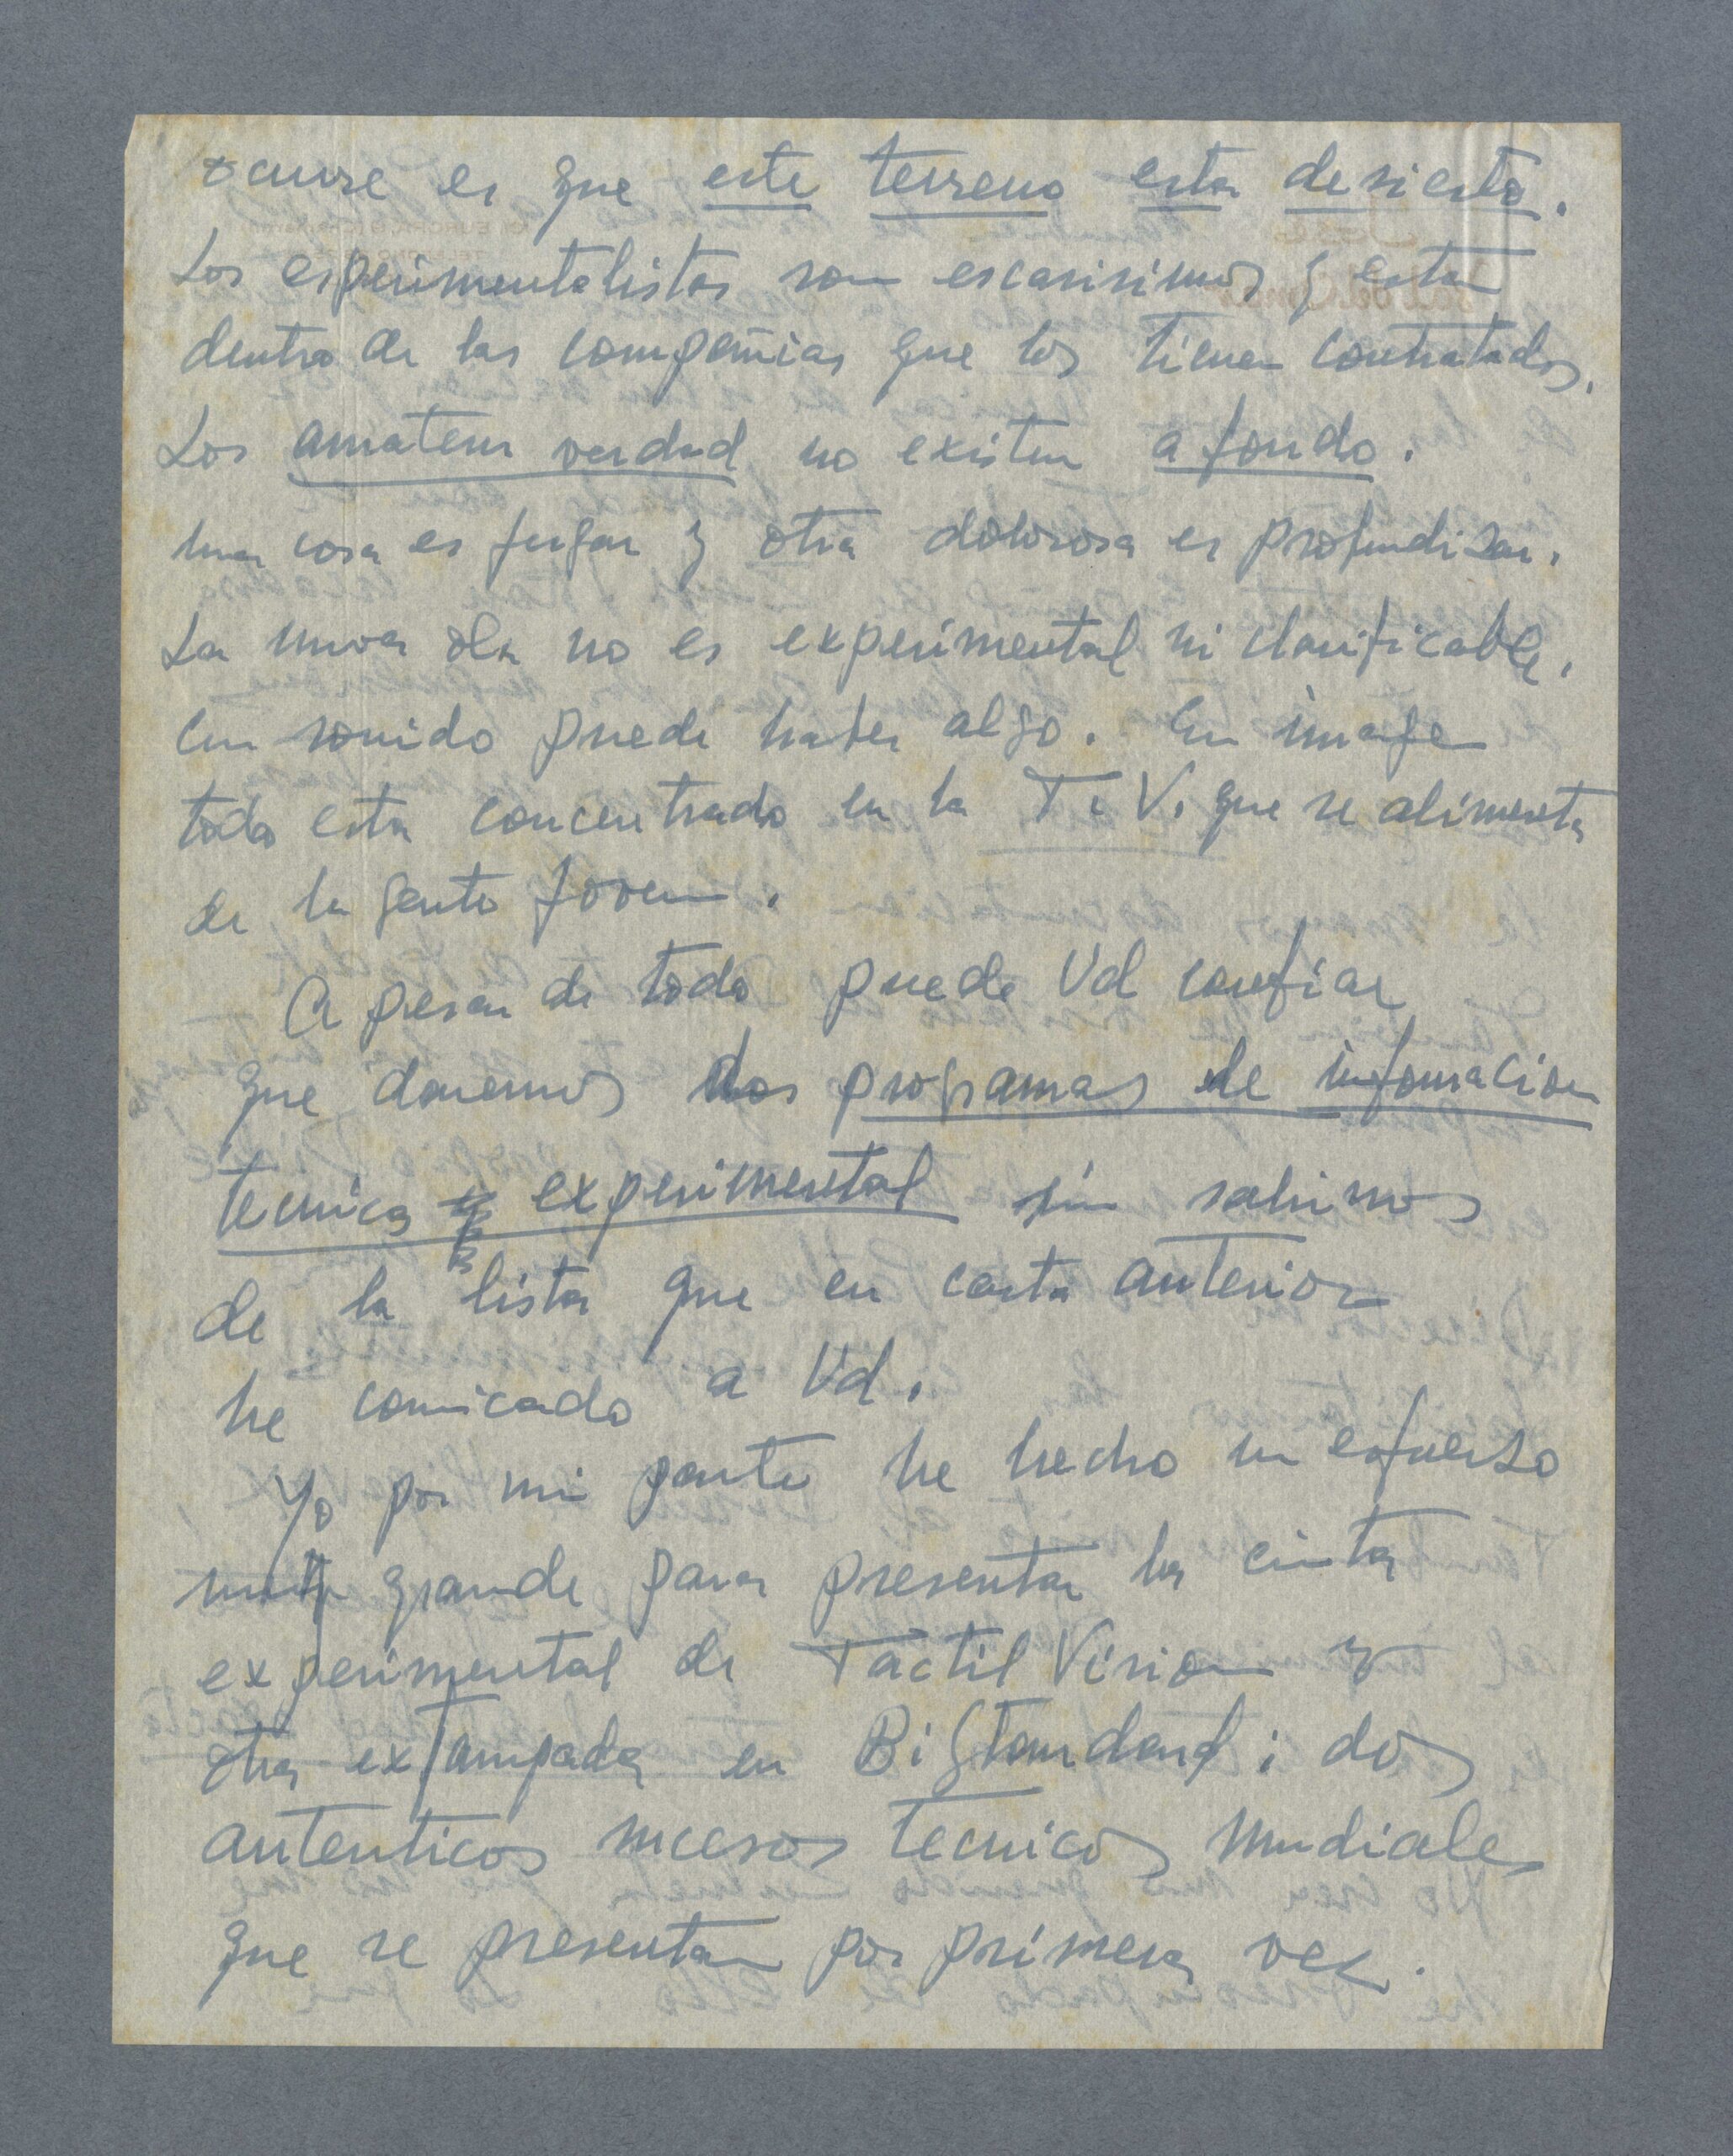 ocurre es que este terreno esta desierto.
Los esperimentalistas son escasisimos y estan
dentro de las compañias que los tienen contratados.
Los amateur verdad no existen a fondo.
una cosa es jugar y otra dolorosa es profundizar.
La nueva ola no es experimental ni clasificable.
En sonido puede haber algo. En imagen
todo esta concentrado en la T.V. que se alimenta
de la gente joven.
A pesar de todo puede Vd confiar
que daremos dos programas de informacion
tecnica y experimental sin salirnos
de la lista que en carta anterior
he comicado a Vd.
Yo por mi parte he hecho un esfuerzo
muy grande para presentar la cinta
experimental de Táctil Vision y
otra extampada en BiStandard; dos
autenticos sucesos tecnicos mundiales
que se presentan por primera vez.